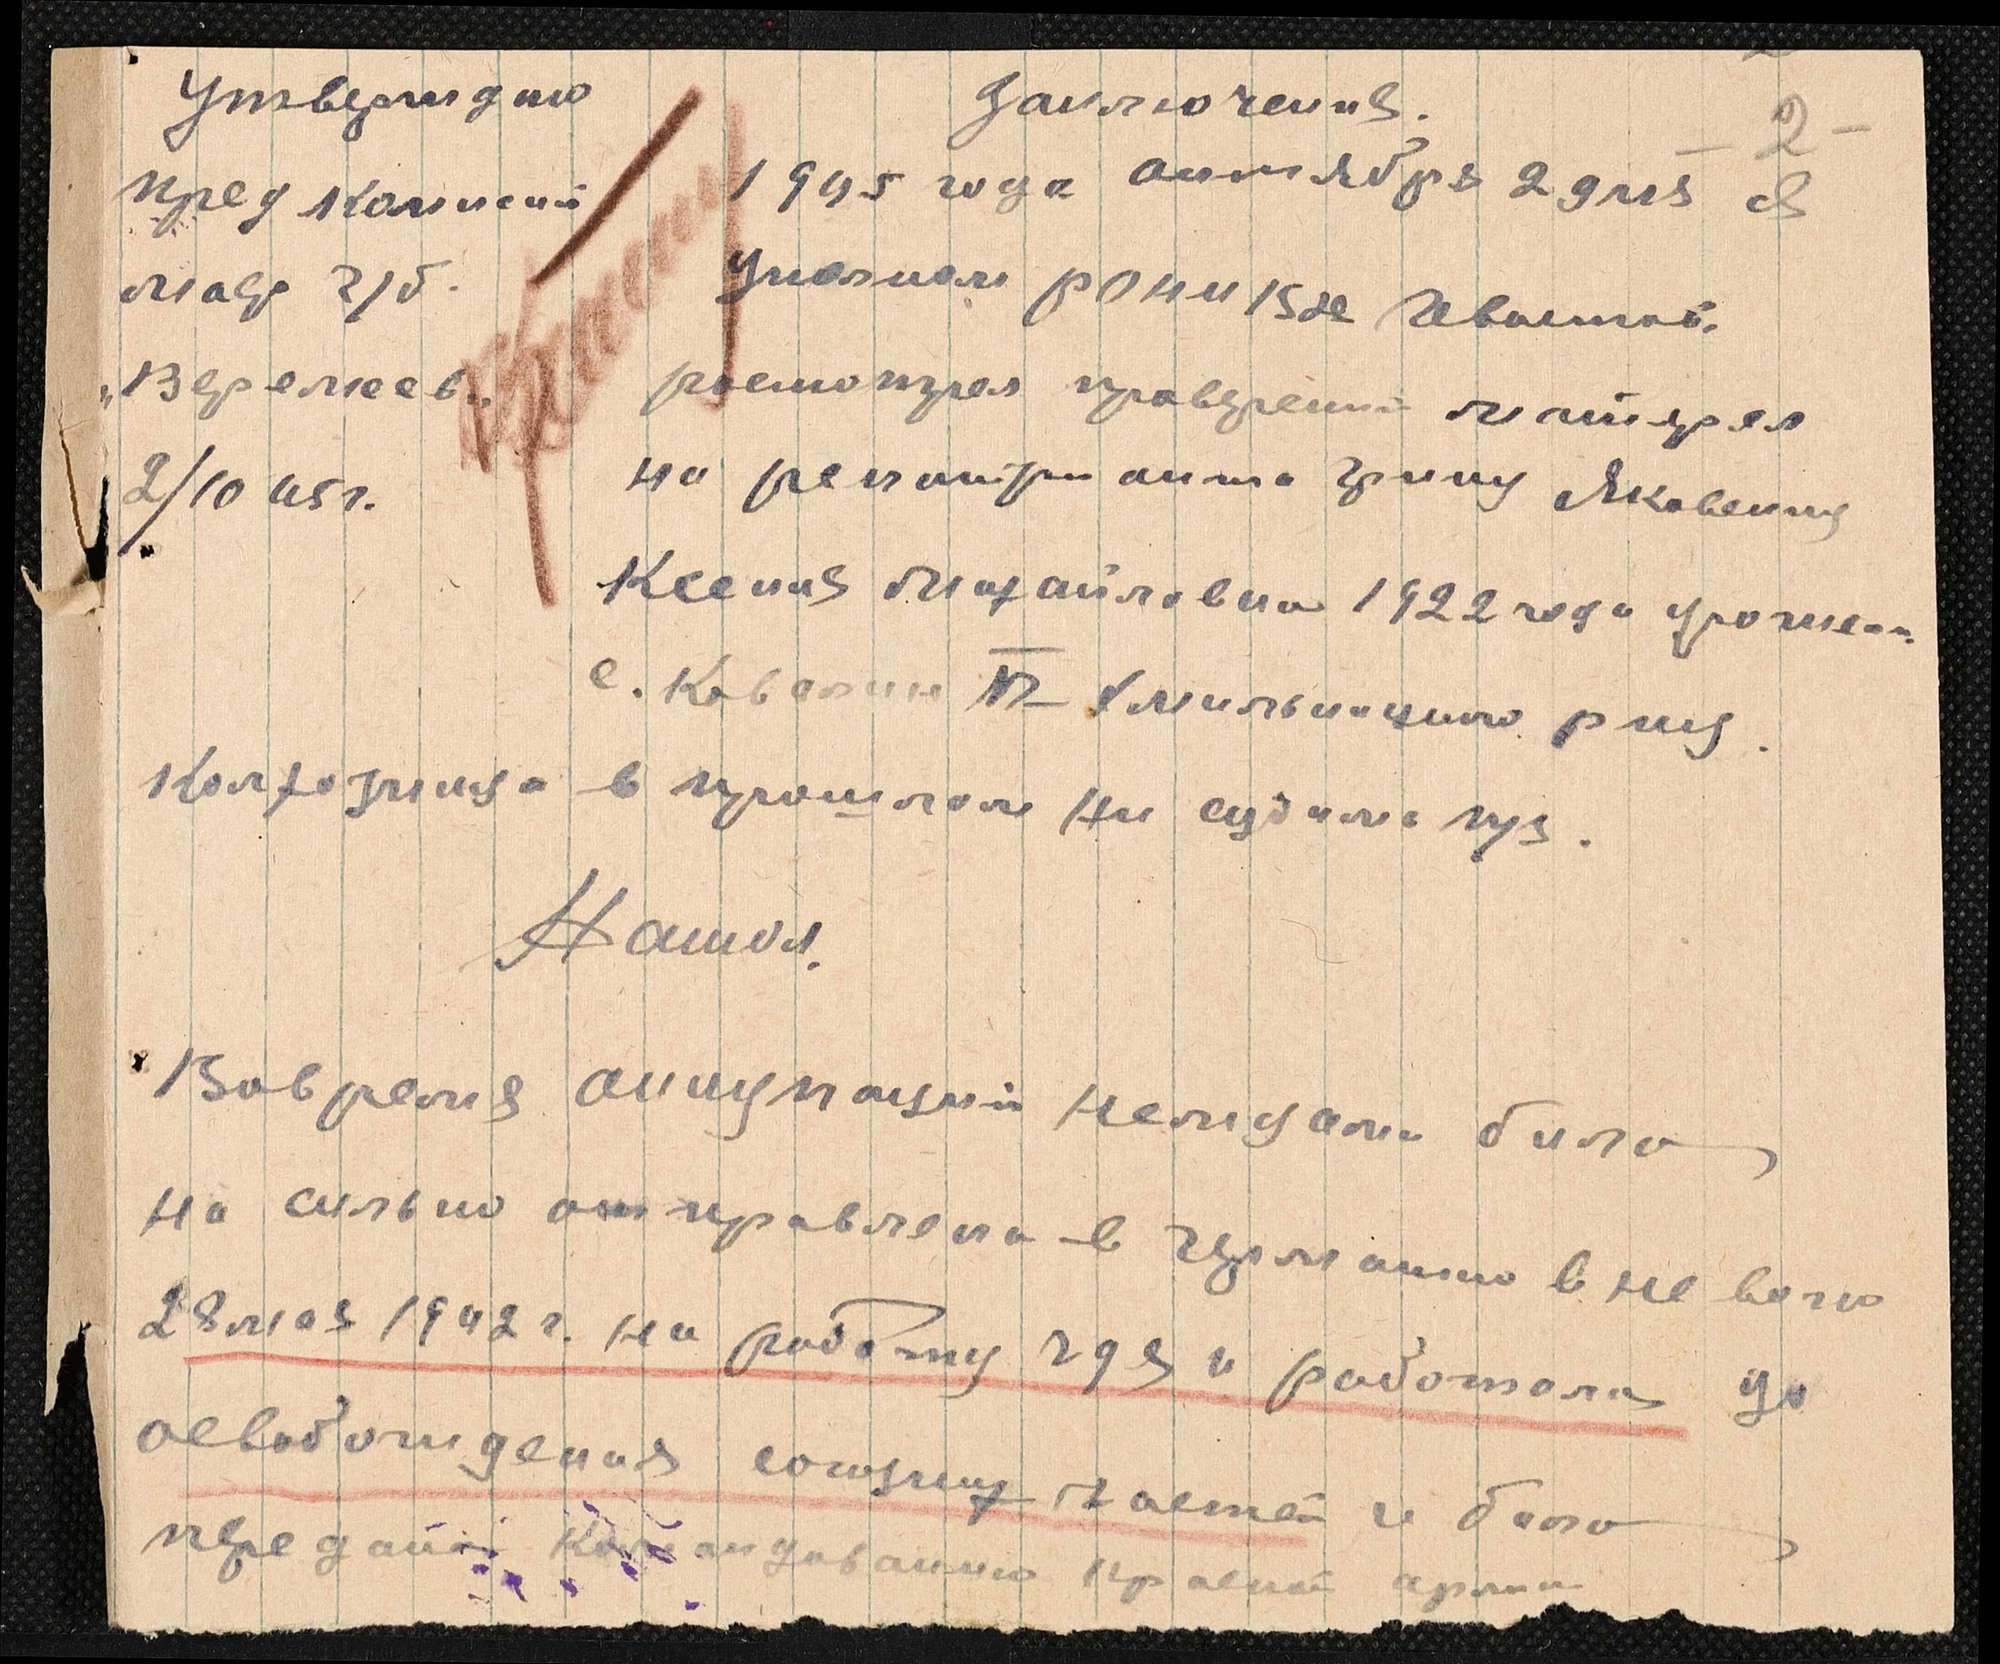 Утверждаю
пред комисий
маер г/б.
"Веремеев"
2/10 45 г.
Заключения.
- 2 -
1945 года октября 2 дня я
уполном РО НКВД
россмотрел проверений
на репатрианта гр-нку Яковенку
Ксения Михайловна 1922 года урожен.
с. Ково II рну.
Колхозница в прошлом не судима
Нашол.
Вовремя оккупацуий немцами било
на сильно отправлена в Германию в неволю
28 мая 1942 г. на работу гдя и работала до
освобождения союзних частей и било
переданой командованию красной армии